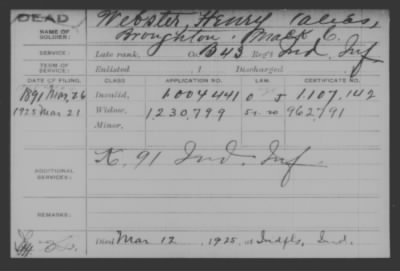 DEAD
NAME OF SOLDIER:
Webster, Henry
Broughton, Mack C.
SERVICE:
Late rank, Co. B 43 Reg't Ind. Inf
TERM OF SERVICE:
Enlisted , 1 Discharged
DATE OF FILING. CLASS APPLICATION NO. LAW. CERTIFICATE NO.
1891 Mar, 26 Invalid, 1004441 1,107,142
1925 Mar, 21 Widow, 1,230,799 962791
Minor,
ADDITIONAL SERVICES:
K. 91 Ind. Inf.
REMARKS:
Died Mar 12 1925, at Indpls, Ind.